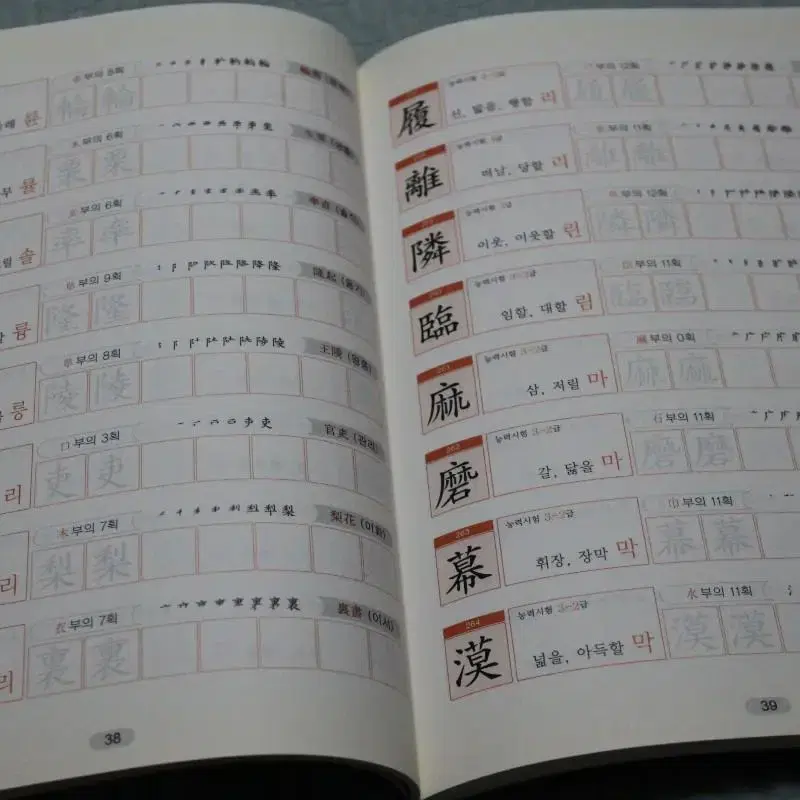 부의 8획
륜
輪 輪
부의 6획
률
栗 栗
부의 6획
솔
率 率
부의 9획
隆起 (융기)
륭
隆 隆
부의 8획
王陵 (왕릉)
릉
陵 陵
口부의 3획
官吏 (관리)
리
吏 吏
木부의 7획
梨花 (이화)
리
梨 梨
衣부의 7획
裏書 (이서)
리
裏 裏
38
履
능력시험
신, 밟을, 행할 리
부의 12획
履 履
離
능력시험
떠날, 당할 리
부의 11획
離 離
隣
능력시험
이웃, 이웃할 린
부의 12획
隣 隣
260
臨
능력시험 3-2급
임할, 대할 림
부의 11획
臨 臨
261
麻
능력시험 3-2급
삼, 저릴 마
麻부의 0획
麻 麻
262
磨
능력시험 3-2급
갈, 닳을 마
石부의 11획
磨 磨
263
幕
능력시험 3-2급
휘장, 장막 막
巾부의 11획
幕 幕
264
漠
능력시험 3-2급
넓을, 아득할 막
水부의 11획
漠 漠
39